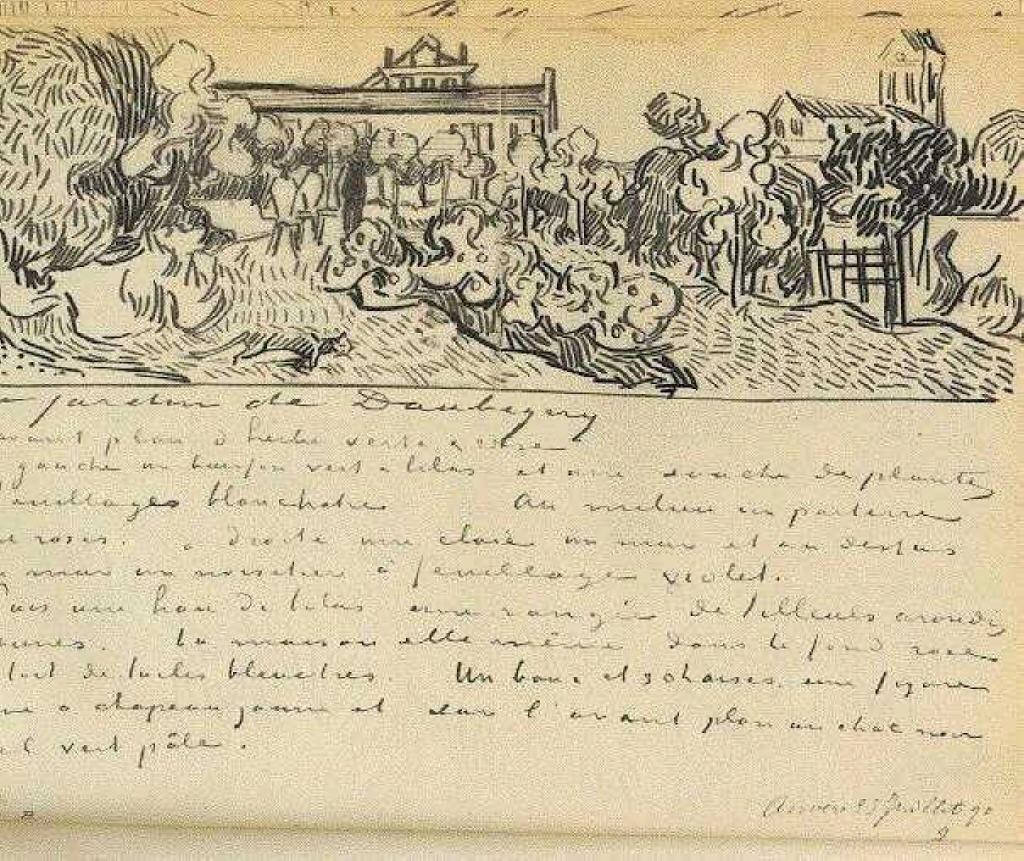 jardin de Daubigny
avant plan d'herbe verte & rose
gauche un buisson vert & lilas et une souche de plante
feuillages blanchatres Au milieu un parterre
roses. a droite une claie un mur et au dessus
mur un noisetier à feuillage violet.
Puis une haie de lilas une rangée de tilleuls arrondis
jaunes. La maison elle même dans le fond rose
toit de tuiles bleuatres. Un banc et 3 chaises une figure
à chapeau jaune et sur l'avant plan un chat noir
vert pâle.
Auvers 23 Juillet 90